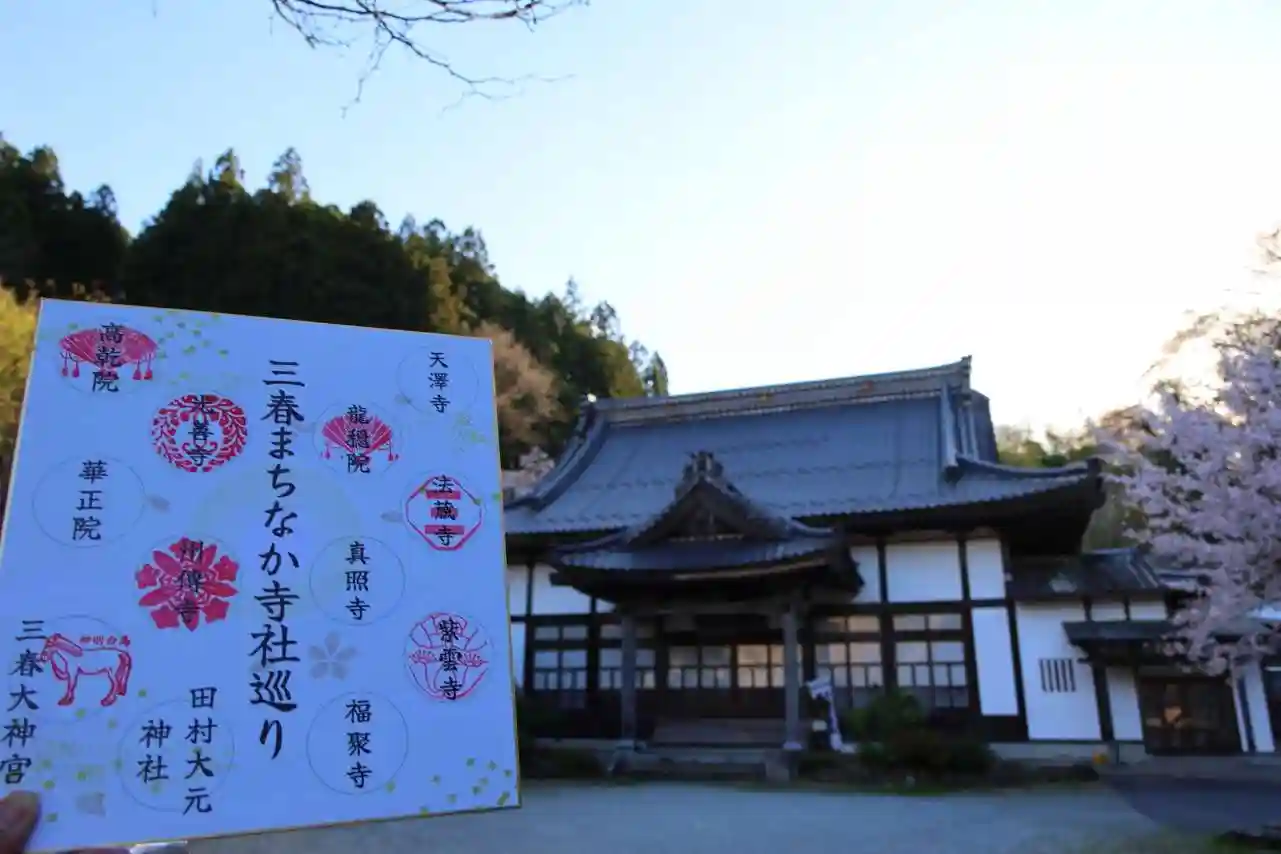 三春まちなか寺社巡り
天澤寺
龍穏院
法蔵寺
真照寺
紫雲寺
福聚寺
高乾院
光善寺
華正院
州傳寺
田村大元
神社
三春大神宮